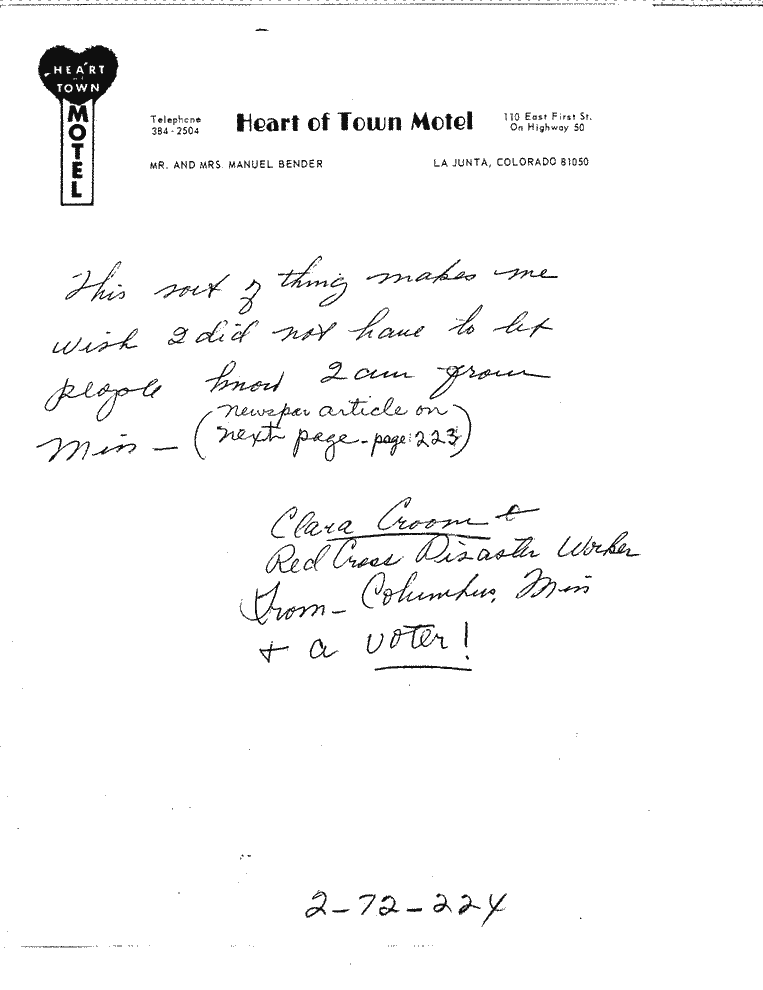 HEART
OF
TOWN
MOTEL
Telephone
384-2504
Heart of Town Motel
110 East First St.
On Highway 50
MR. AND MRS. MANUEL BENDER
LA JUNTA, COLORADO 81050
This sort of thing makes me
wish I did not have to let
people know I am from
Miss — (newspar article on
next page - page 223)
Clara Croom
Red Cross Disaster Worker
From - Columbus, Miss
+ a voter!
2-72-224